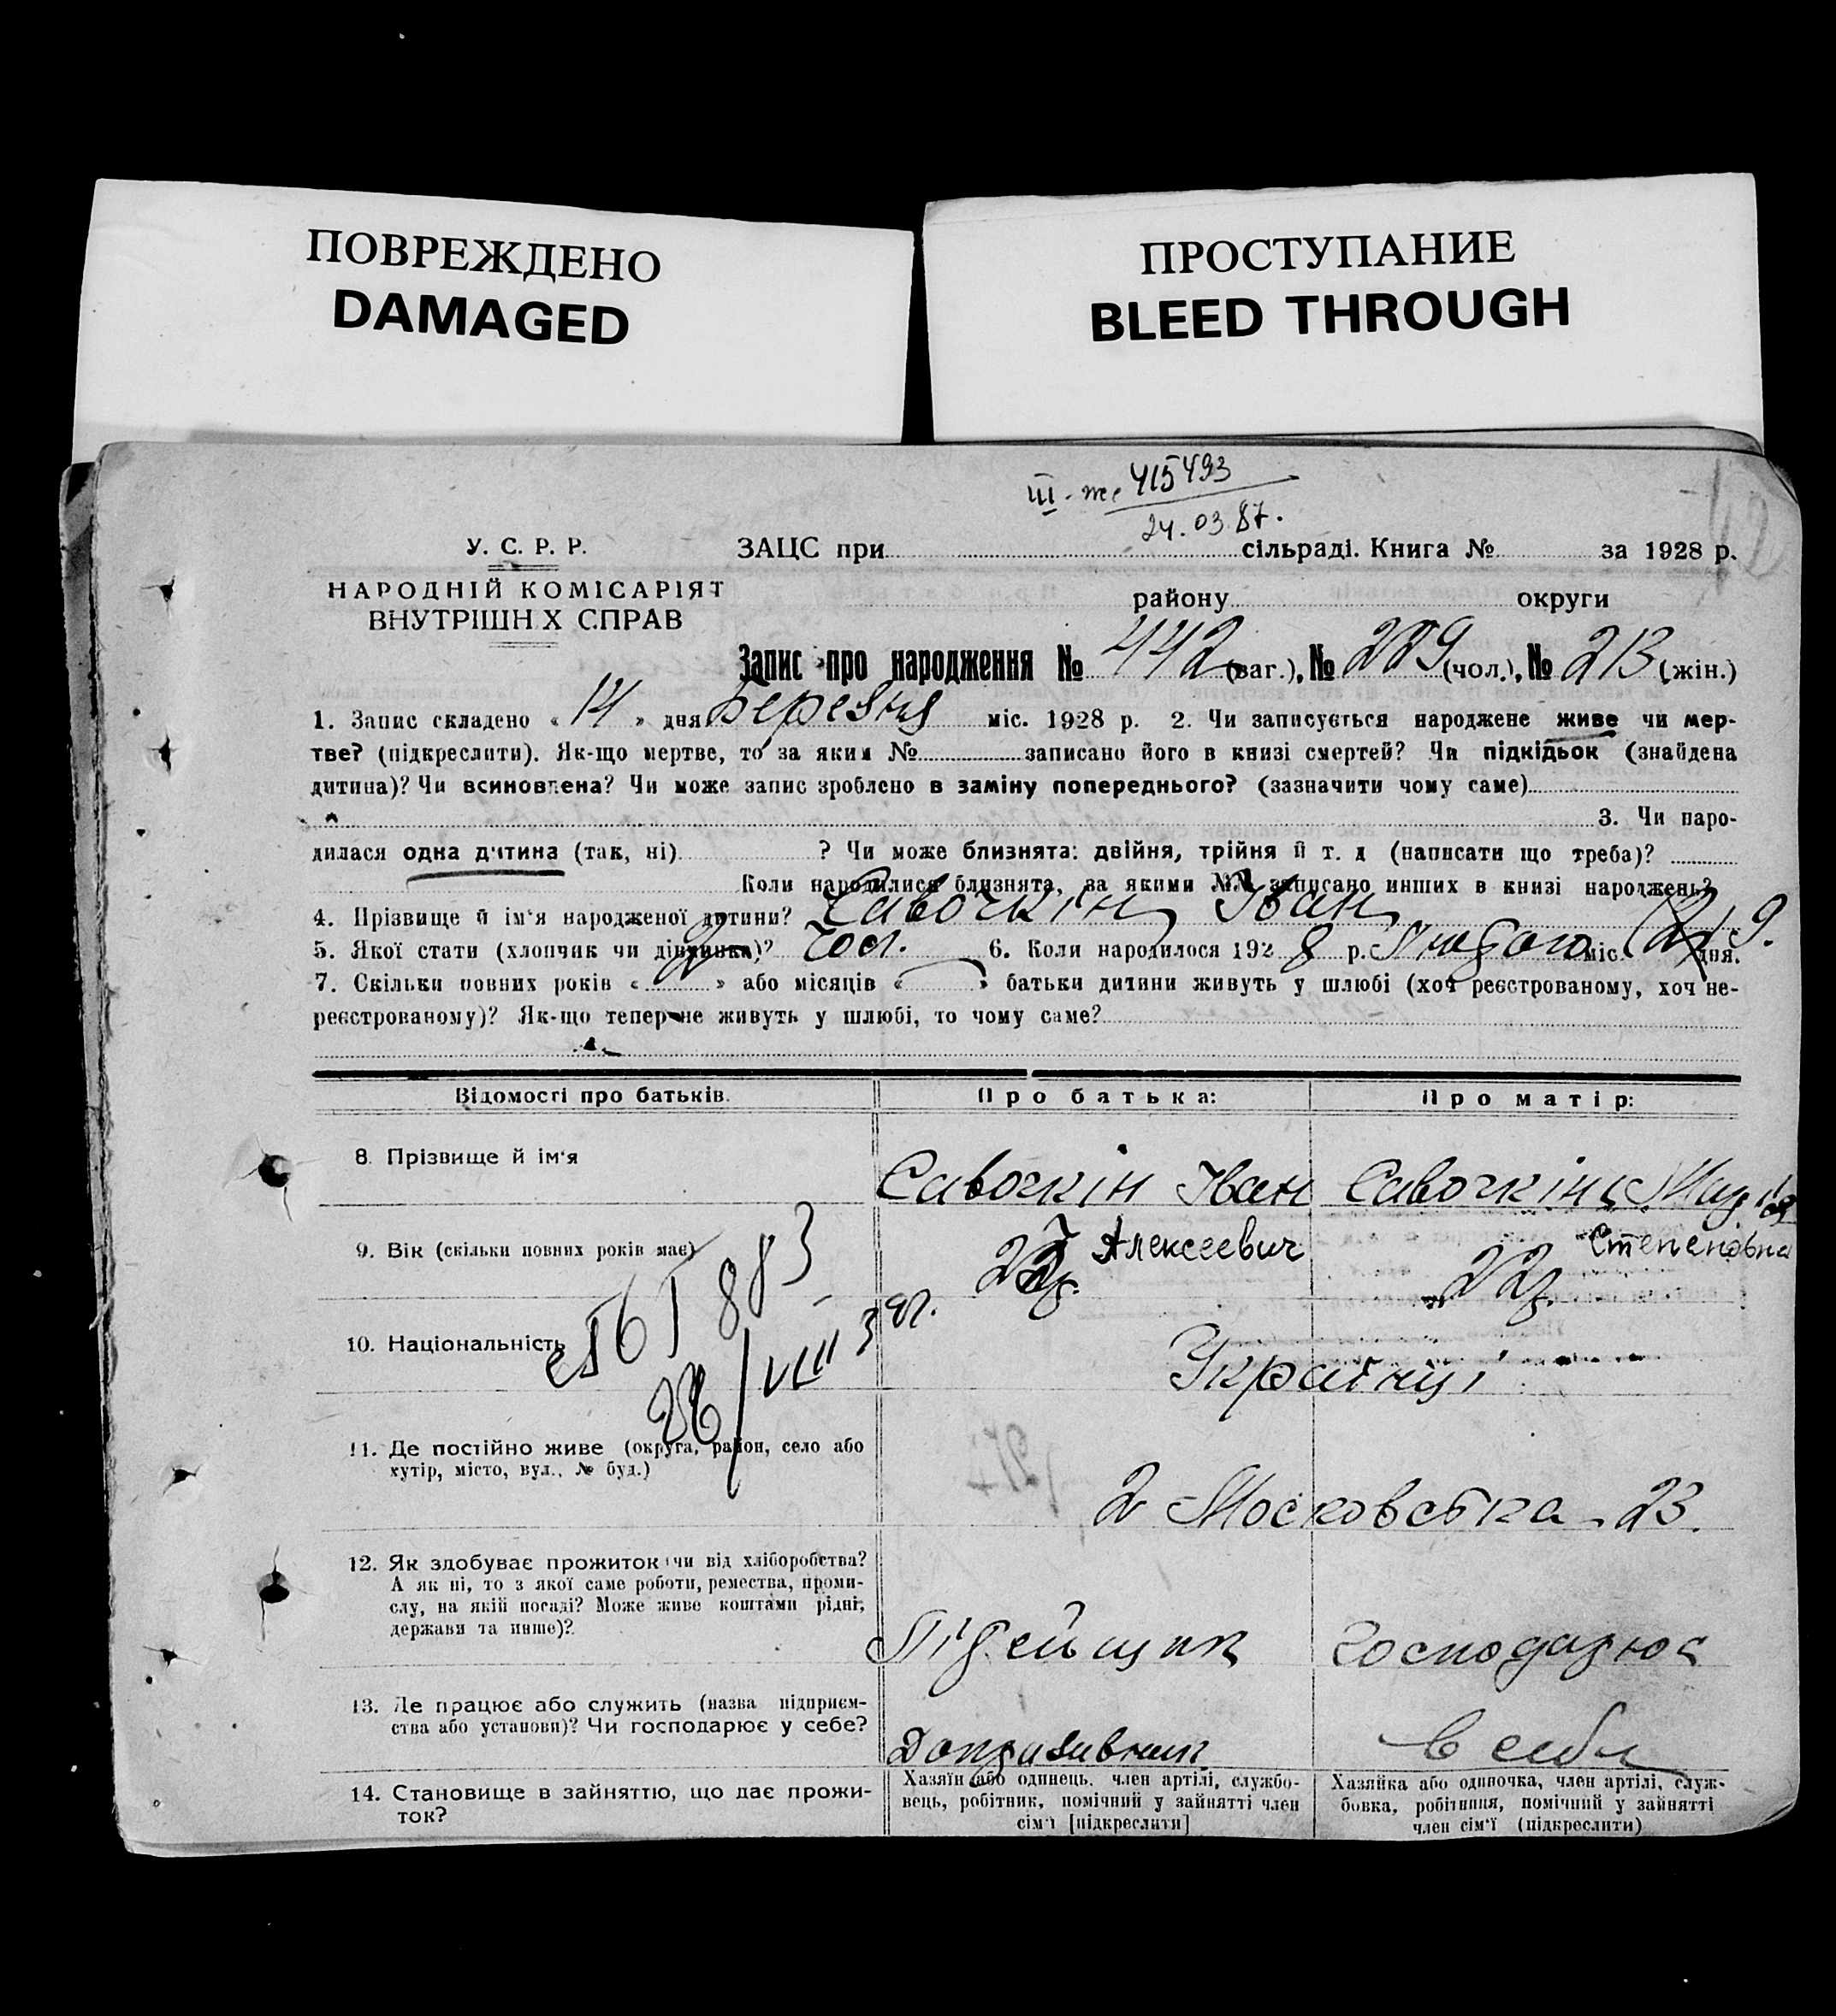 ПОВРЕЖДЕНО
DAMAGED
ПРОСТУПАНИЕ
BLEED THROUGH
415493
24.03.87.
У. С. Р. Р.
НАРОДНІЙ КОМІСАРІЯТ
ВНУТРІШН Х СПРАВ
ЗАЦС при сільраді. Книга № за 1928 р.
району округи
Запис про народження № 442 (заг.), № 229 (чол.), № 213 (жін.)
1. Запис складено « 14 » дня Березня міс. 1928 р. 2. Чи записується народжене живе чи мер-
тве? (підкреслити). Як-що мертве, то за яким № записано його в книзі смертей? Чи підкідьок (знайдена
дитина)? Чи всиновлена? Чи може запис зроблено в заміну попереднього? (зазначити чому саме)
3. Чи наро-
дилася одна дитина (так, ні) ? Чи може близнята: двійня, трійня й т. д (написати що треба)?
Коли народилися близнята, за якими №№ записано инших в книзі народжень?
4. Прізвище й ім'я народженої дитини? Савочкін Іван
5. Якої стати (хлопчик чи дівчинка)? чол. 6. Коли народилося 1928 р. Лютого міс. 9. дня.
7. Скільки повних років « 2 » або місяців « » батьки дитини живуть у шлюбі (хоч реєстрованому, хоч не-
реєстрованому)? Як-що тепер не живуть у шлюбі, то чому саме?
Відомості про батьків. Про батька: Про матір:
8. Прізвище й ім'я Савочкін Іван Савочкіна Марія
Алексеевич Степеновна
9. Вік (скільки повних років має) 22р.
10. Національність Українці
28/VIII 39г.
11. Де постійно живе (округа, район, село або
хутір, місто, вул., № буд.)
2 Московська - 23.
12. Як здобуває прожиток (чи від хліборобства?
А як ні, то з якої саме роботи, ремества, проми-
слу, на якій посаді? Може живе коштами рідні,
держави та инше)?
господарює
13. Де працює або служить (назва підприєм-
ства або установи)? Чи господарює у себе?
в себе
14. Становище в зайняттю, що дає прожи-
ток?
Хазяїн або одинець, член артілі, службо-
вець, робітник, помічний у зайнятті член
сім'ї [підкреслити]
Хазяйка або одиночка, член артілі, служ-
бовка, робітниця, помічний у зайнятті
член сім'ї (підкреслити)